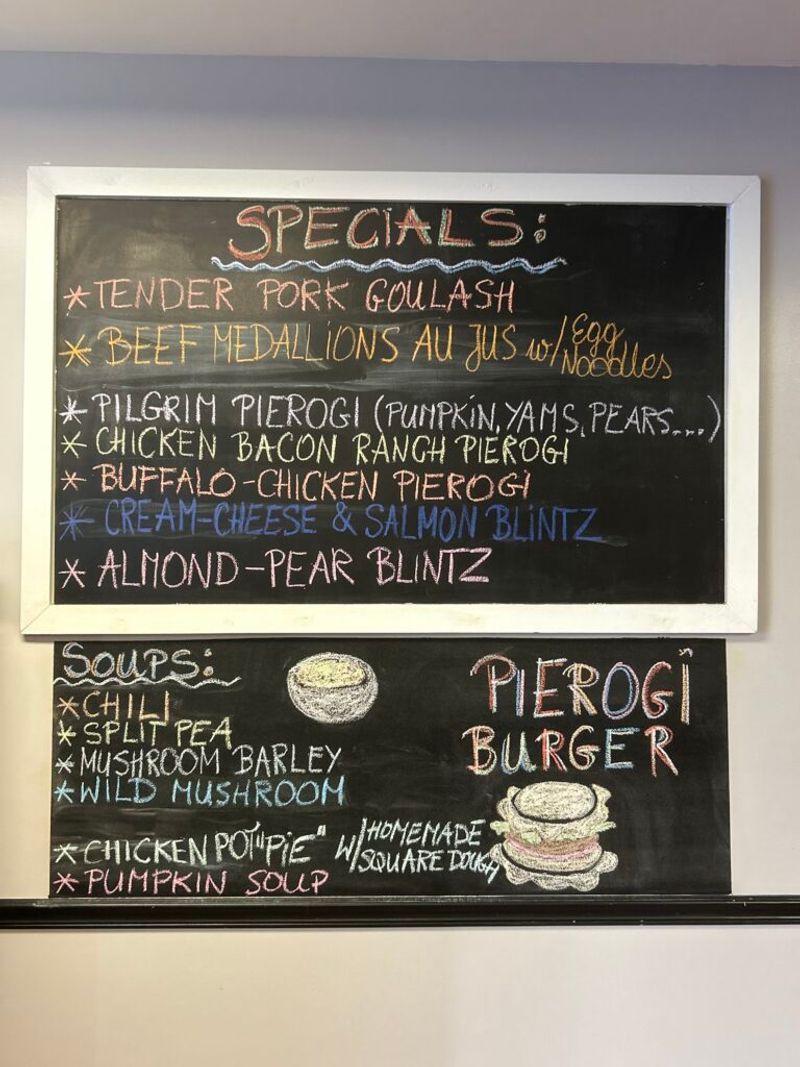 SPECIALS:
* TENDER PORK GOULASH
* BEEF MEDALLIONS AU JUS w/ Egg Noodles
* PILGRIM PIEROGI (PUMPKIN, YAMS, PEARS...)
* CHICKEN BACON RANCH PIEROGI
* BUFFALO-CHICKEN PIEROGI
* CREAM-CHEESE & SALMON BLINTZ
* ALMOND-PEAR BLINTZ
SOUPS:
* CHILI
* SPLIT PEA
* MUSHROOM BARLEY
* WILD MUSHROOM
* CHICKEN POT "PIE" W/ HOMEMADE SQUARE DOUGH
* PUMPKIN SOUP
PIEROGI
BURGER